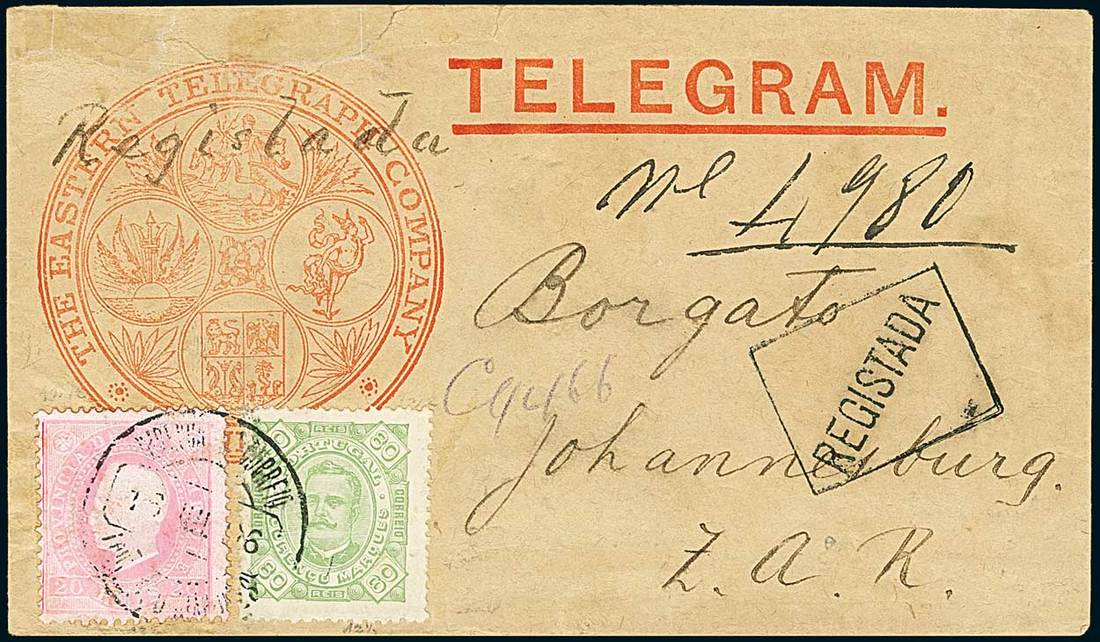 TELEGRAM.
THE EASTERN TELEGRAPH COMPANY
Registada
4980
Borgato
REGISTADA
Johannesburg.
Z. A. R.
PROVINCIA D
20
80 REIS 80
PORTUGAL
CORREIO
LOURENÇO MARQUES
80 REIS 80